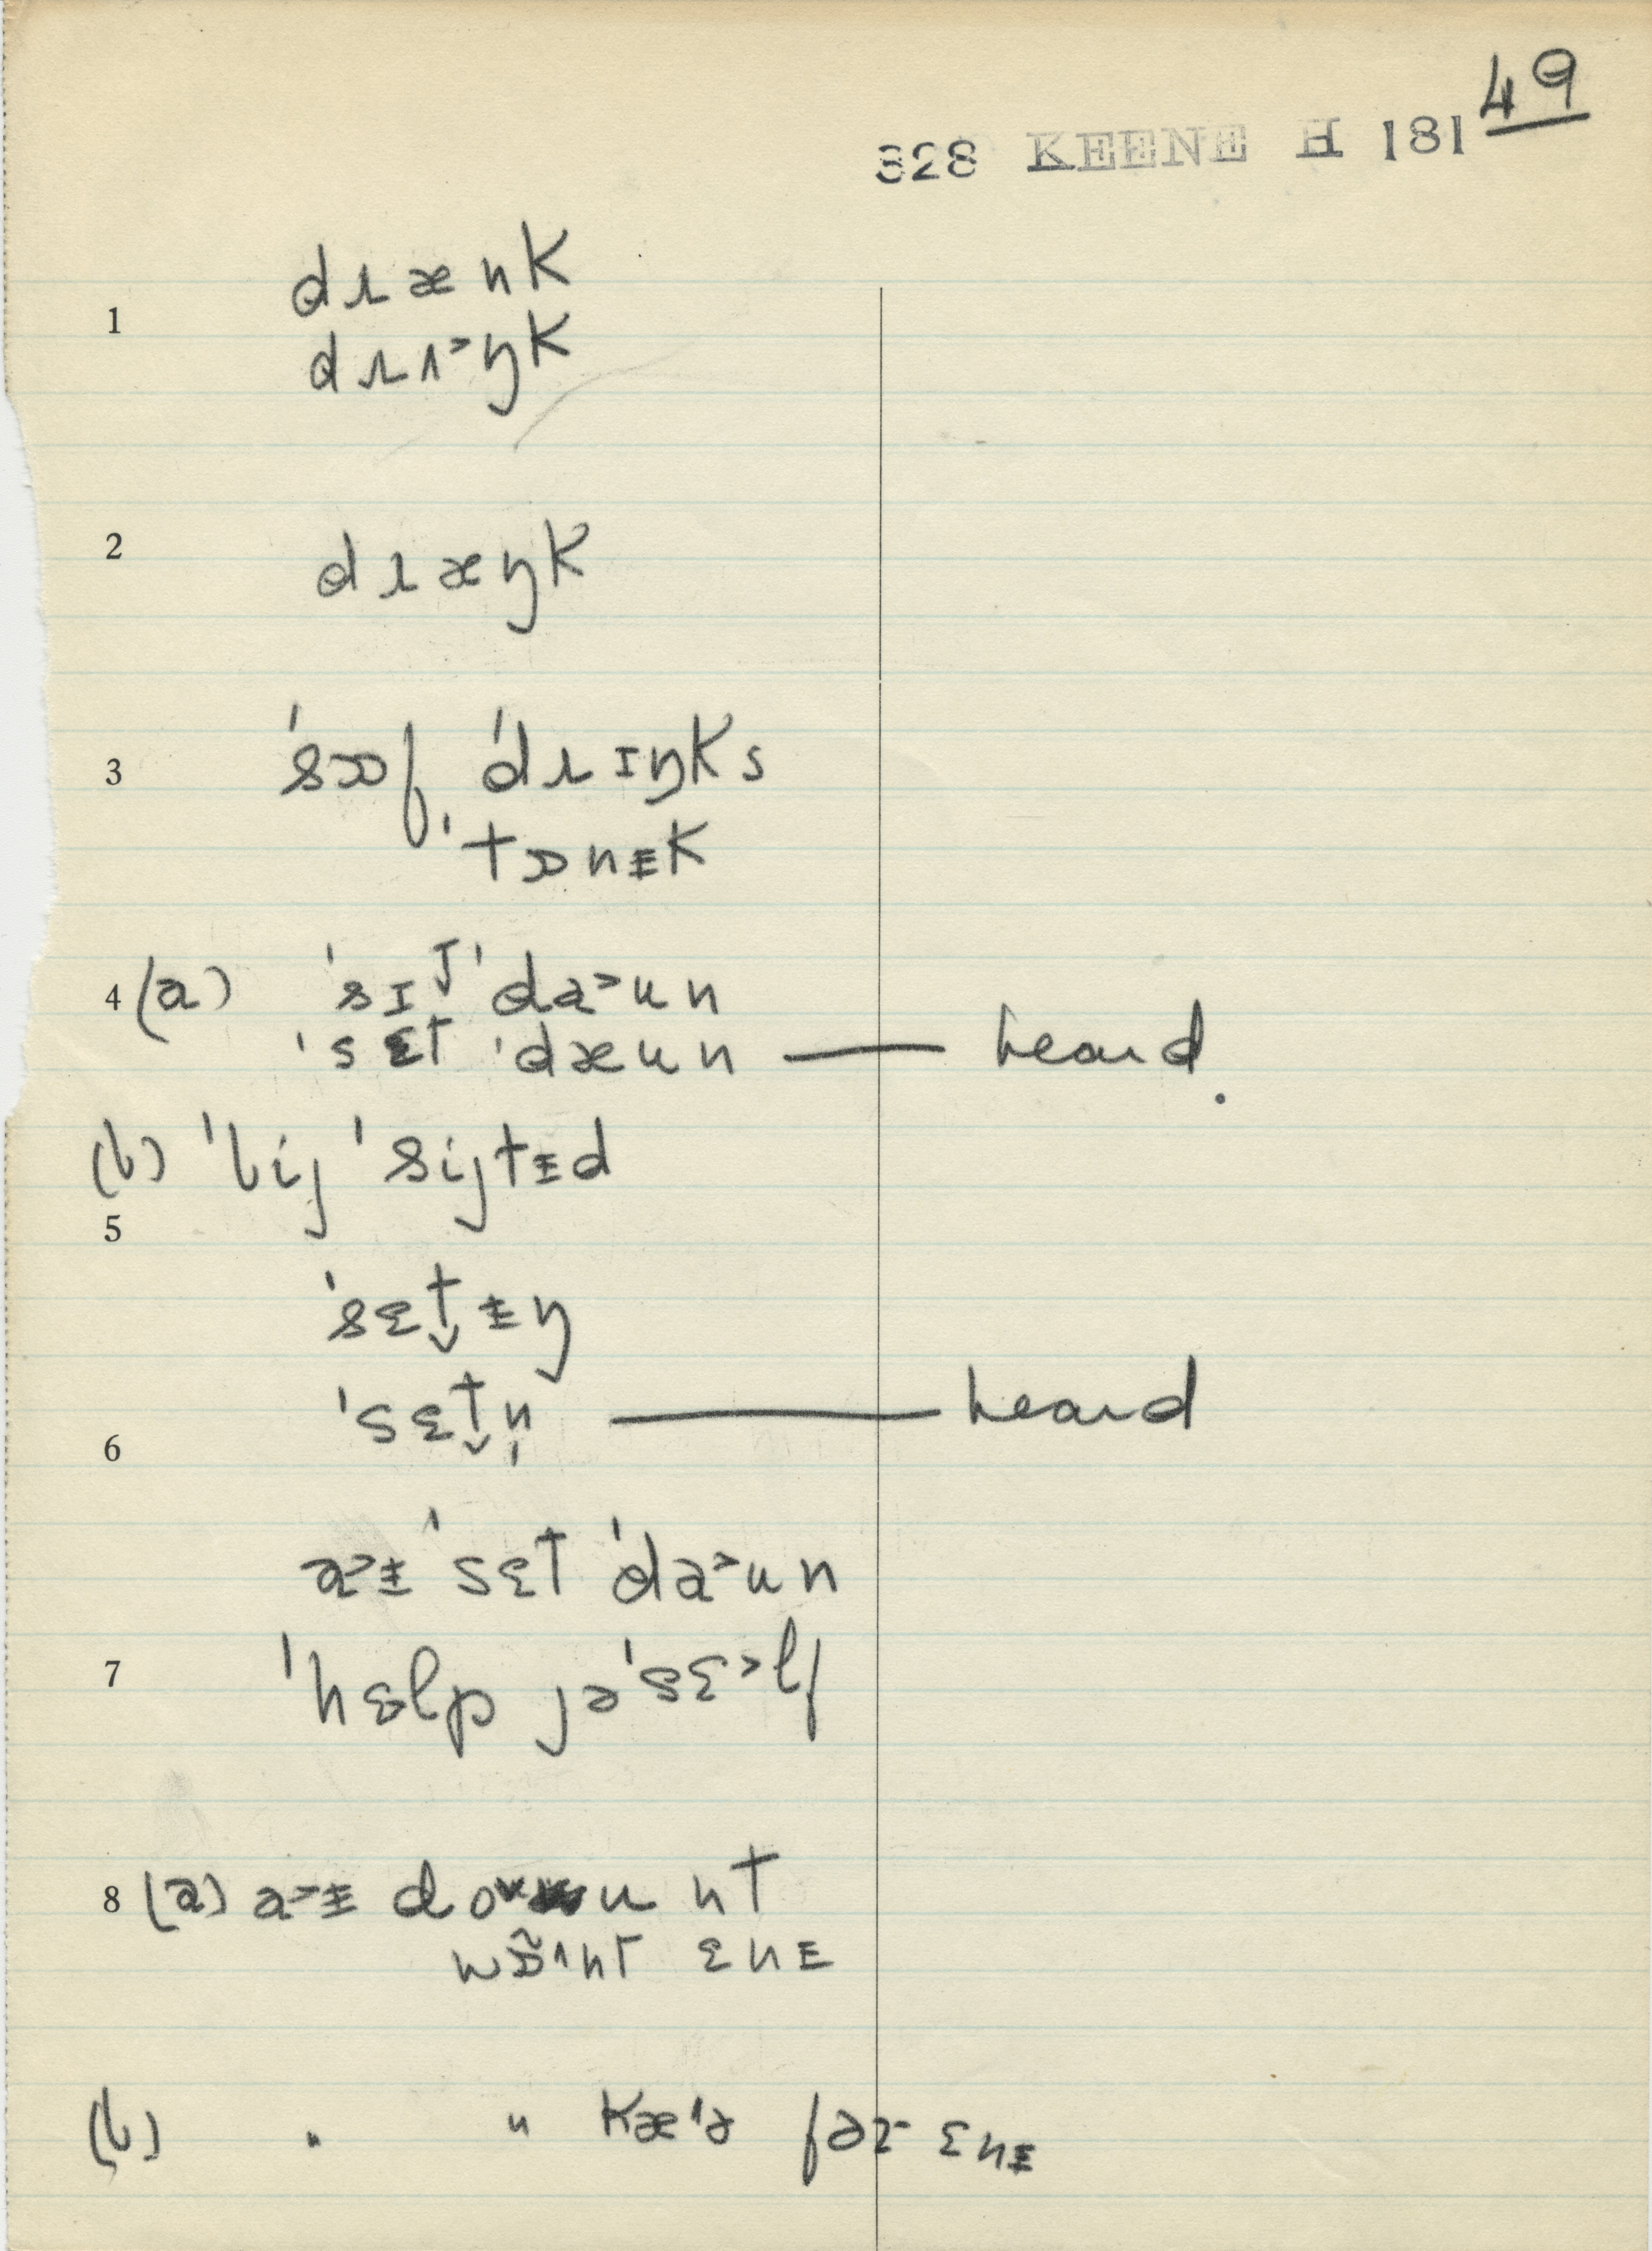 49
328 KEENE H 181
dɹænk
1
dɹʌ˃ŋk
2 dɹæŋk
3 ˈsɒf, ˈdɹɪŋks
ˈtɒnᵻk
4 (a) ˈsɪt̬ ˈda˃un
ˈsɛt ˈdæun — heard.
(b) ˈbij ˈsijtᵻd
5
ˈsɛt̬ᵻŋ
ˈsɛt̬n̩ — heard
6
a˃ᵻ ˈsɛt ˈda˃un
7 ˈhɛlp jəˈsɛ˃lf
8 (a) a˃ᵻ do˅u nt
wɒ̃˄nt ɛnᵻ
(b) " " kæ˄ə fər ɛnᵻ